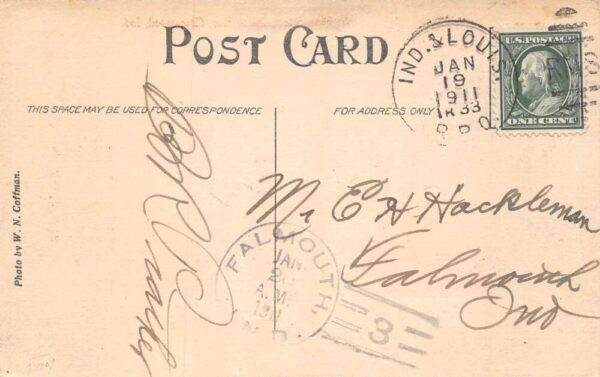 POST CARD
THIS SPACE MAY BE USED FOR CORRESPONDENCE
FOR ADDRESS ONLY
IND. & LOUIS.
JAN
19
1911
R.P.O.
U.S. POSTAGE
ONE CENT
Mr E H Hackleman
Falmouth
Ind
FALMOUTH,
JAN
A.M.
1911
3
Photo by W. N. Coffman.